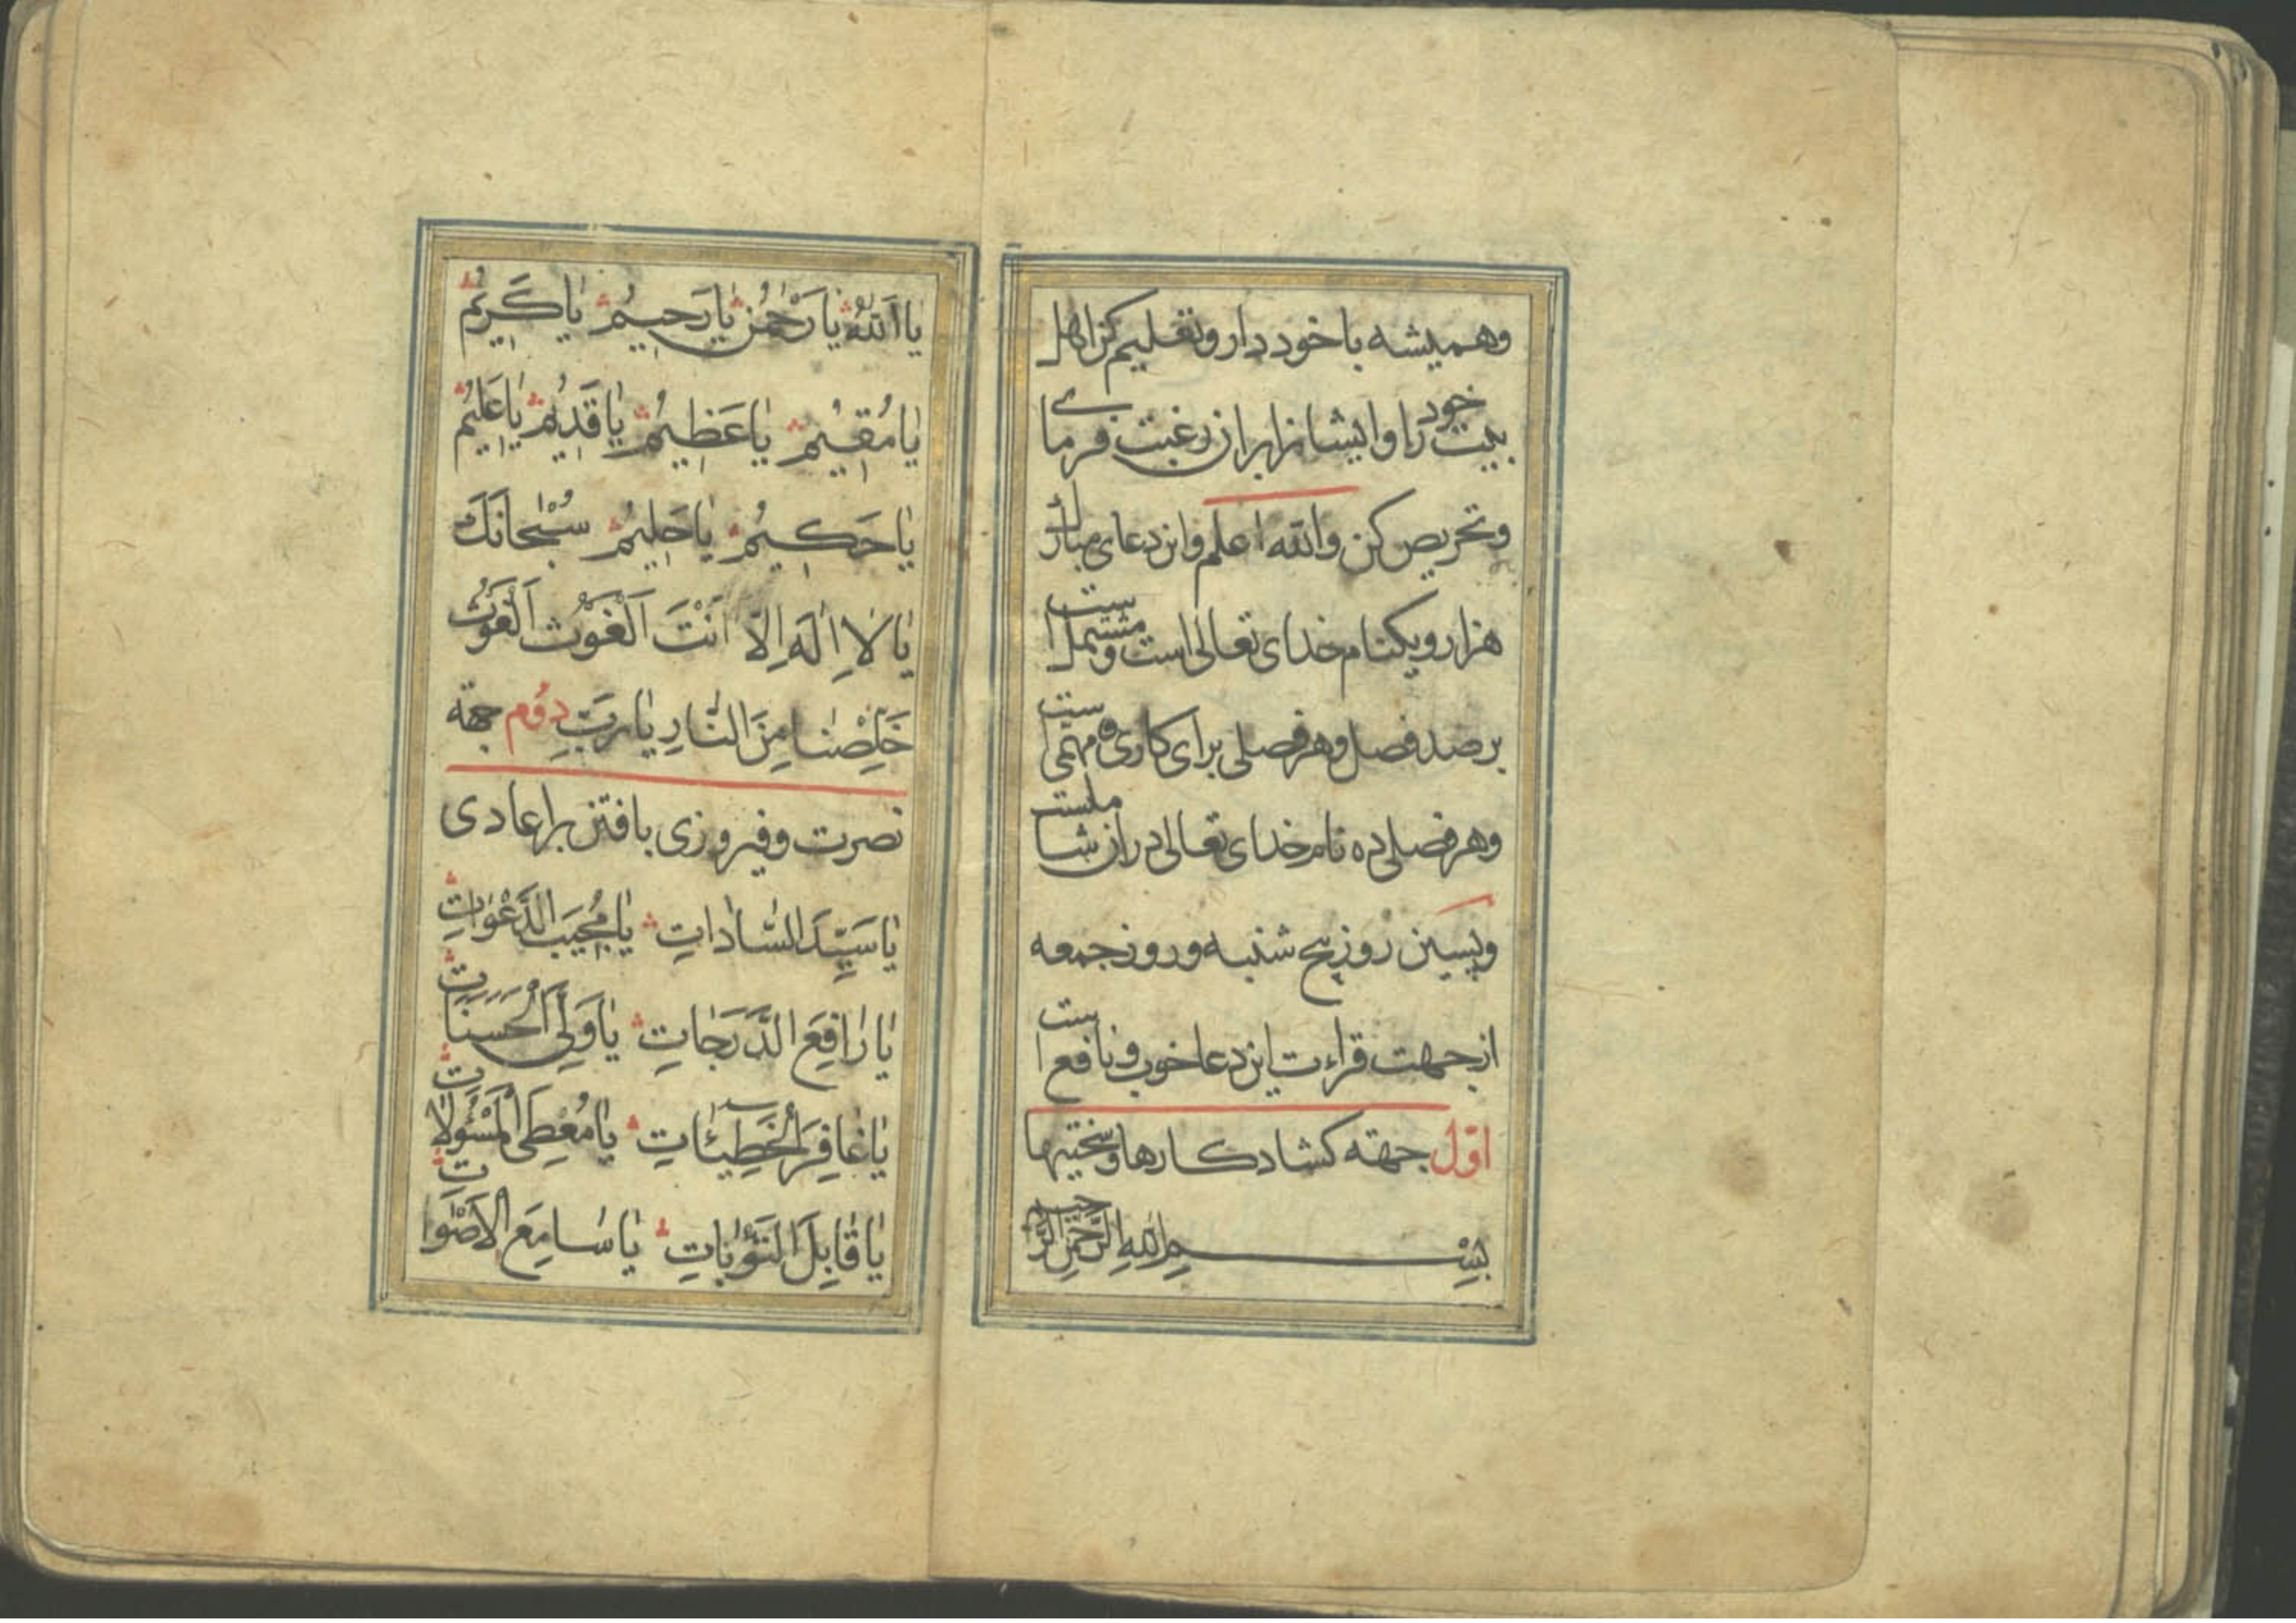 وهمیشه با خود دار وتعلیم کن اهل
بیت خود را وایشانرا بران رغبت فرمای
وتحریص کن والله اعلم واین دعای مبارک
هزار ویکنام خدای تعالی است ومشتمل است
بر صد فصل وهر فصلی برای کاری ومهمی است
وهر فصلی ده نام خدای تعالی دران شاملست
وپسین روز پنج شنبه وروز جمعه
از جهت قراءت این دعا خوب ونافع است
اوّل جهته کشاد کارها وسختیها
بِسْمِ اللهِ الرَّحْمٰنِ الرَّحیم
یا اَللهُ یا رَحْمٰنُ یا رَحیمُ یا کَریمُ
یا مُقیمُ یا عَظیمُ یا قَدیمُ یا عَلیمُ
یا حَکیمُ یا حَلیمُ سُبْحانَكَ
یا لا اِلٰهَ اِلّا اَنْتَ اَلْغَوْث اَلْغَوْث
خَلِّصْنا مِنَ النّارِ یا رَبِّ دوم جهة
نصرت وفیروزی یافتن بر اعادی
یا سَیِّدَ السّاداتِ یا مُجیبَ الدَّعَواتِ
یا رافِعَ الدَّرَجاتِ یا وَلِیَّ الْحَسَناتِ
یا غافِرَ الْخَطیئاتِ یا مُعْطِیَ الْمَسْئُولاتِ
یا قابِلَ التَّوْباتِ یا سامِعَ الْاَصْواتِ